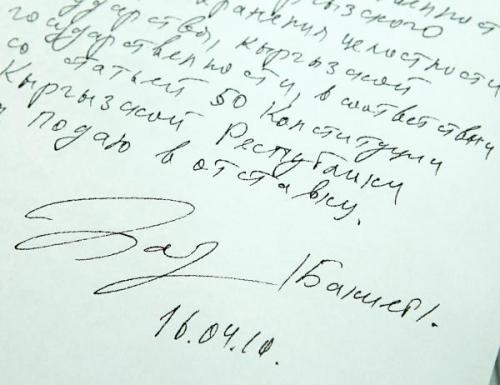 кыргызского
кыргызской
государственности, в соответствии
со статьей 50 Конституции
Кыргызской Республики
подаю в отставку.
/Бакиев/.
16.04.10.